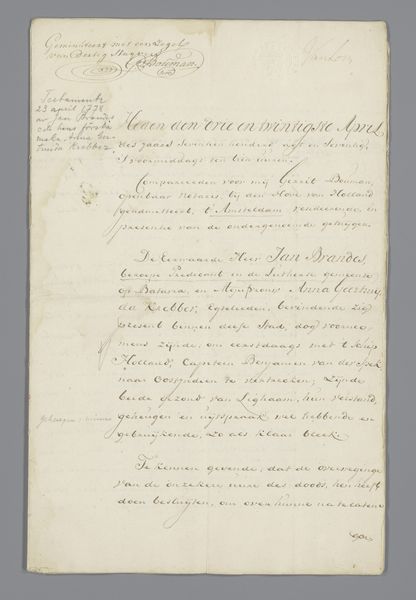 Geminuteert met een Zegel
van Dertig Stuyvers
G: Bouman
Not:
Testamente
23 april 1778
av Jan Brandes
och hans första
maka Anna Ger-
truida Krebber.
Heden den drie en twintigste April
des jaars Seventien hondert, agt en Seventig,
's voormiddags ten tien uuren.
Compareerden voor mij Gerrit Bouman,
openbaar Notaris, bij den Hove van Holland
geadmitteert, t' Amsterdam residerende, in
presentie van de ondergenoemde getuijgen.
De Eerwaarde Heer Jan Brandes,
beroepe Predicant in de Luthersche gemeente
op Batavia, en Mejuffrouw Anna Geertruy
da Krebber, Egtelieden, bevindende zig
present binnen deese Stad, dog voornee,
mens zijnde, om eerstdaags met 't schip
Holland, Capiteyn Benjamin van der
naar Oostindien te vertrecken; Zijnde
beide gezond van Lighaam, hun verstand,
geheugen en uijtspraak wel hebbende en
gebruijkende, zo als klaar bleek.
Te kennen gevende, dat de overweginge
van de onzekere uure des doods, hen heeft
doen besluijten, om over hunne natelatene